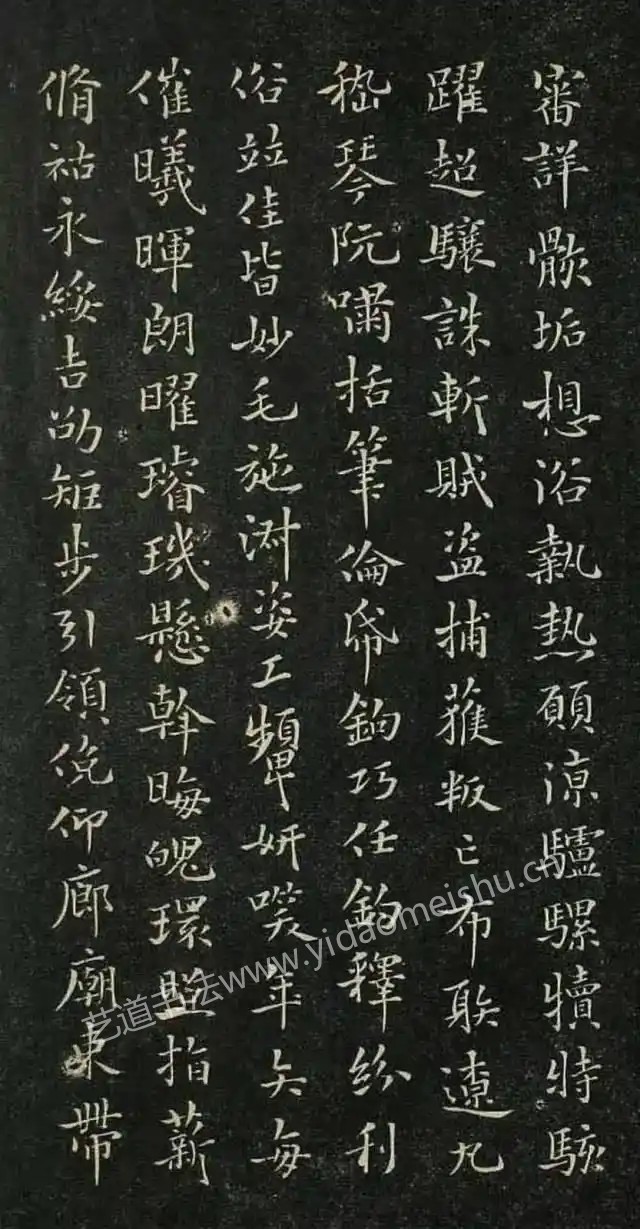 審詳骸垢想浴執熱願涼驢騾犢特駭
躍超驤誅斬賊盜捕獲叛亡布射遼丸
嵇琴阮嘯恬筆倫紙鈞巧任鈞釋紛利
俗竝佳皆妙毛施淑姿工顰妍笑年矢每
催曦暉朗曜璿璣懸斡晦魄環照指薪
脩祜永綏吉劭矩步引領俛仰廊廟束帶
艺道书法www.yidaomeishu.cn